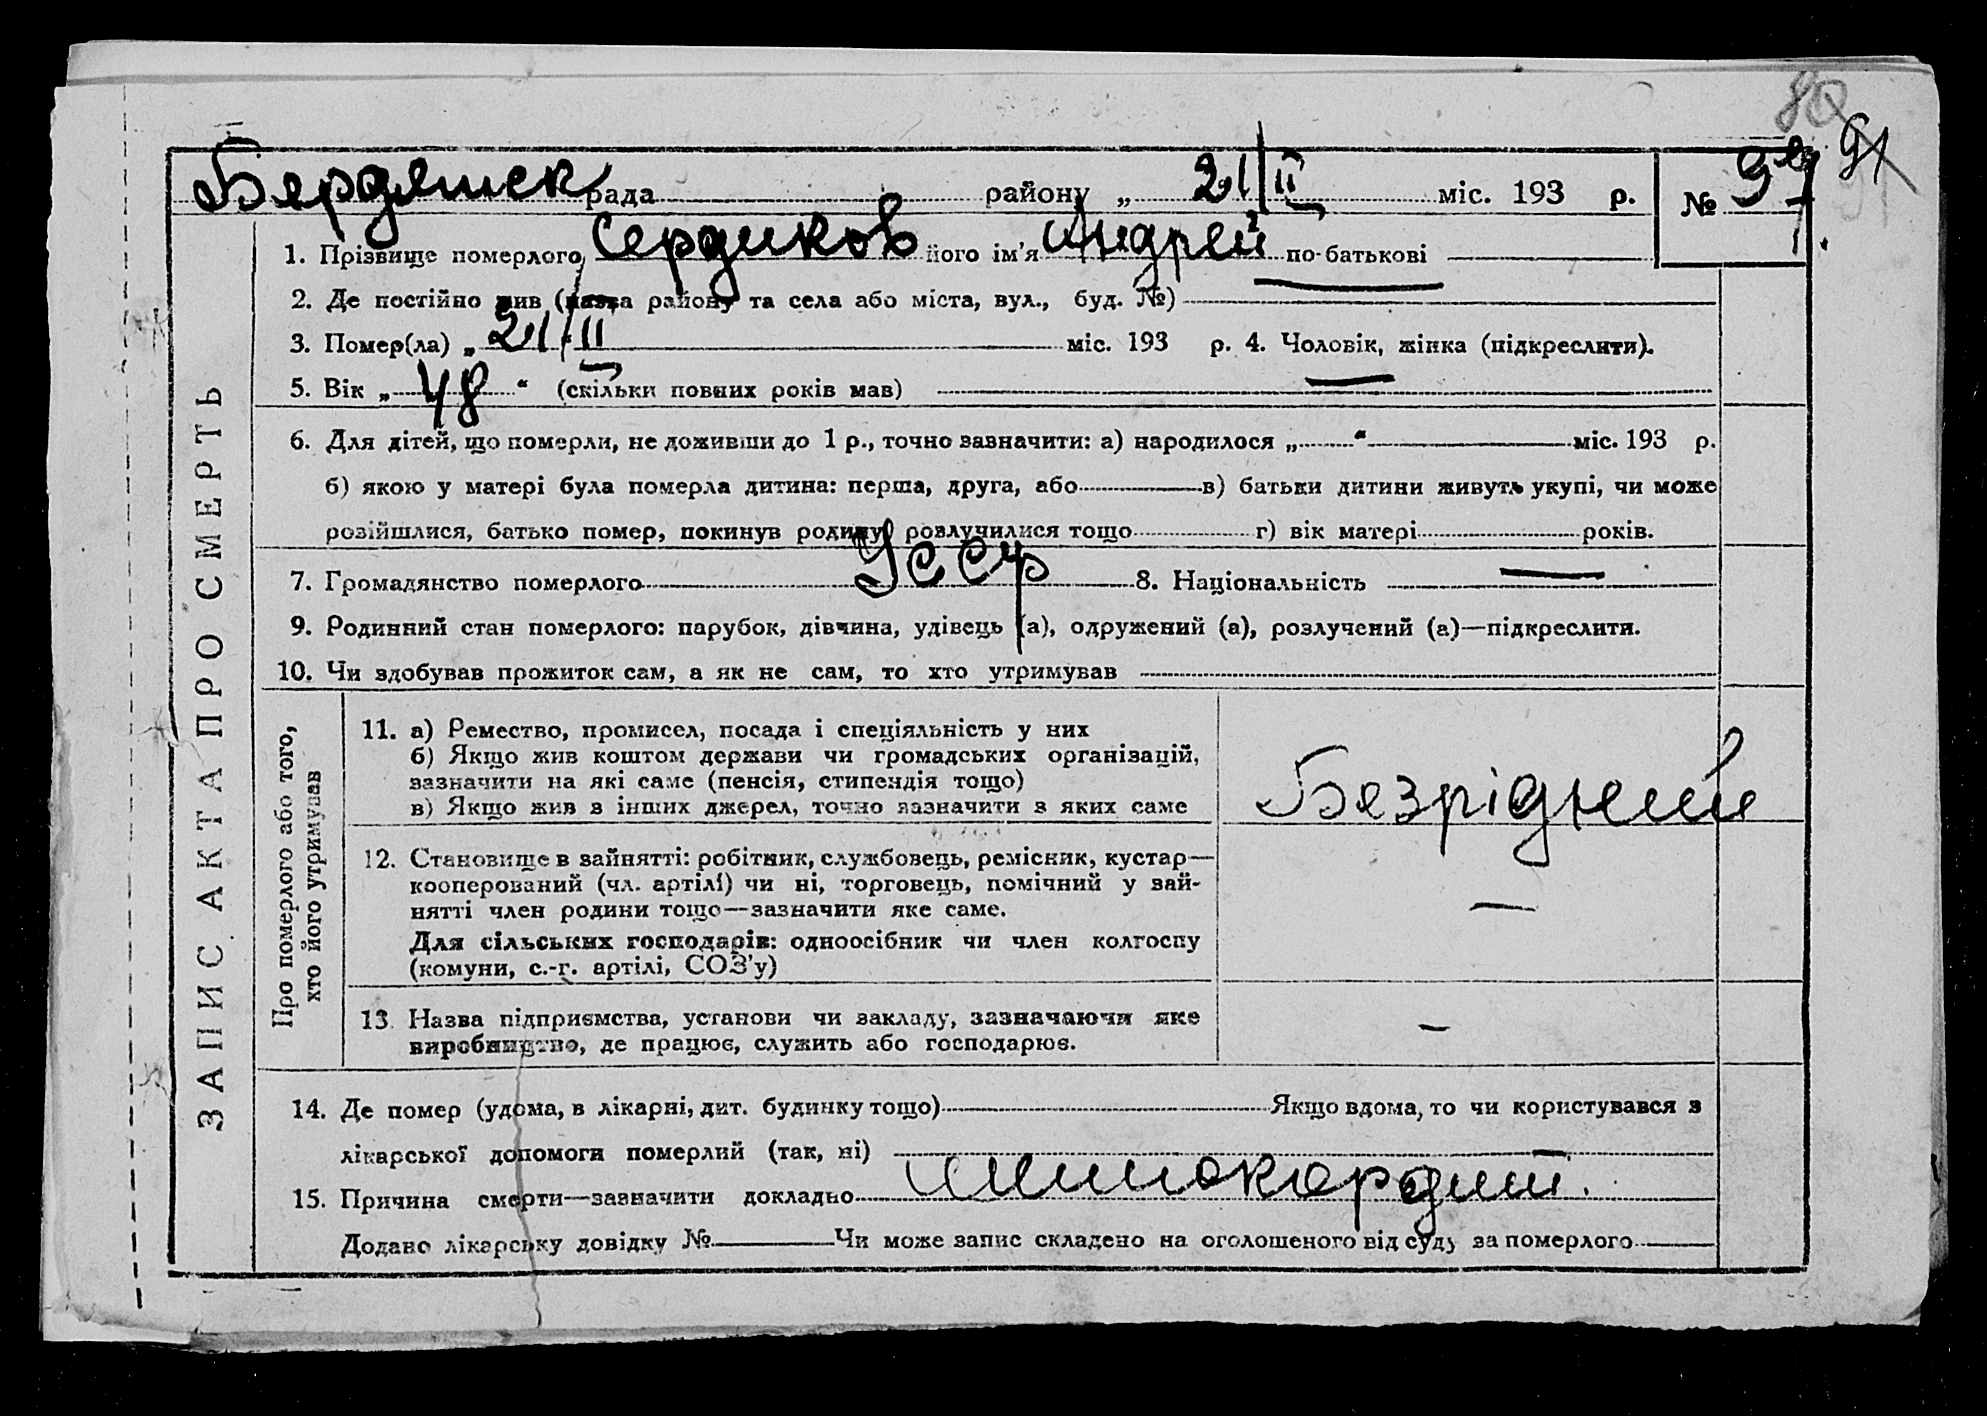 80
91
Бердянськ рада района „ 21/II міс. 193 р. № 97
ЗАПИС АКТА ПРО СМЕРТЬ
1. Прізвище померлого Сердиков його ім'я Андрей по-батькові —
2. Де постійно жив (назва району та села або міста, вул., буд. №)
3. Помер(ла) „ 21/II міс. 193 р. 4. Чоловік, жінка (підкреслити).
5. Вік „ 48 “ (скільки повних років мав)
6. Для дітей, що померли, не доживши до 1 р., точно зазначити: а) народилося „ “ міс. 193 р.
б) якою у матері була померла дитина: перша, друга, або в) батьки дитини живуть укупі, чи може
розійшлися, батько помер, покинув родину, розлучилися тощо г) вік матері років.
7. Громадянство померлого УССР 8. Національність —
9. Родинний стан померлого: парубок, дівчина, удівець (а), одружений (а), розлучений (а)—підкреслити.
10. Чи здобував прожиток сам, а як не сам, то хто утримував
Про померлого або того,
хто його утримував
11. а) Ремество, промисел, посада і спеціяльність у них
б) Якщо жив коштом держави чи громадських організацій,
зазначити на які саме (пенсія, стипендія тощо)
в) Якщо жив з інших джерел, точно зазначити з яких саме
Безрідний
12. Становище в зайнятті: робітник, службовець, ремісник, кустар—
кооперований (чл. артілі) чи ні, торговець, помічний у зай-
нятті член родини тощо—зазначити яке саме.
Для сільських господарів: одноосібник чи член колгоспу
(комуни, с.-г. артілі, СОЗ'у)
—
13. Назва підприємства, установи чи закладу, зазначаючи яке
виробництво, де працює, служить або господарює.
—
14. Де помер (удома, в лікарні, дит. будинку тощо) Якщо вдома, то чи користувався з
лікарської допомоги померлий (так, ні)
15. Причина смерти—зазначити докладно Миокардит.
Додано лікарську довідку № Чи може запис складено на оголошеного від суду за померлого